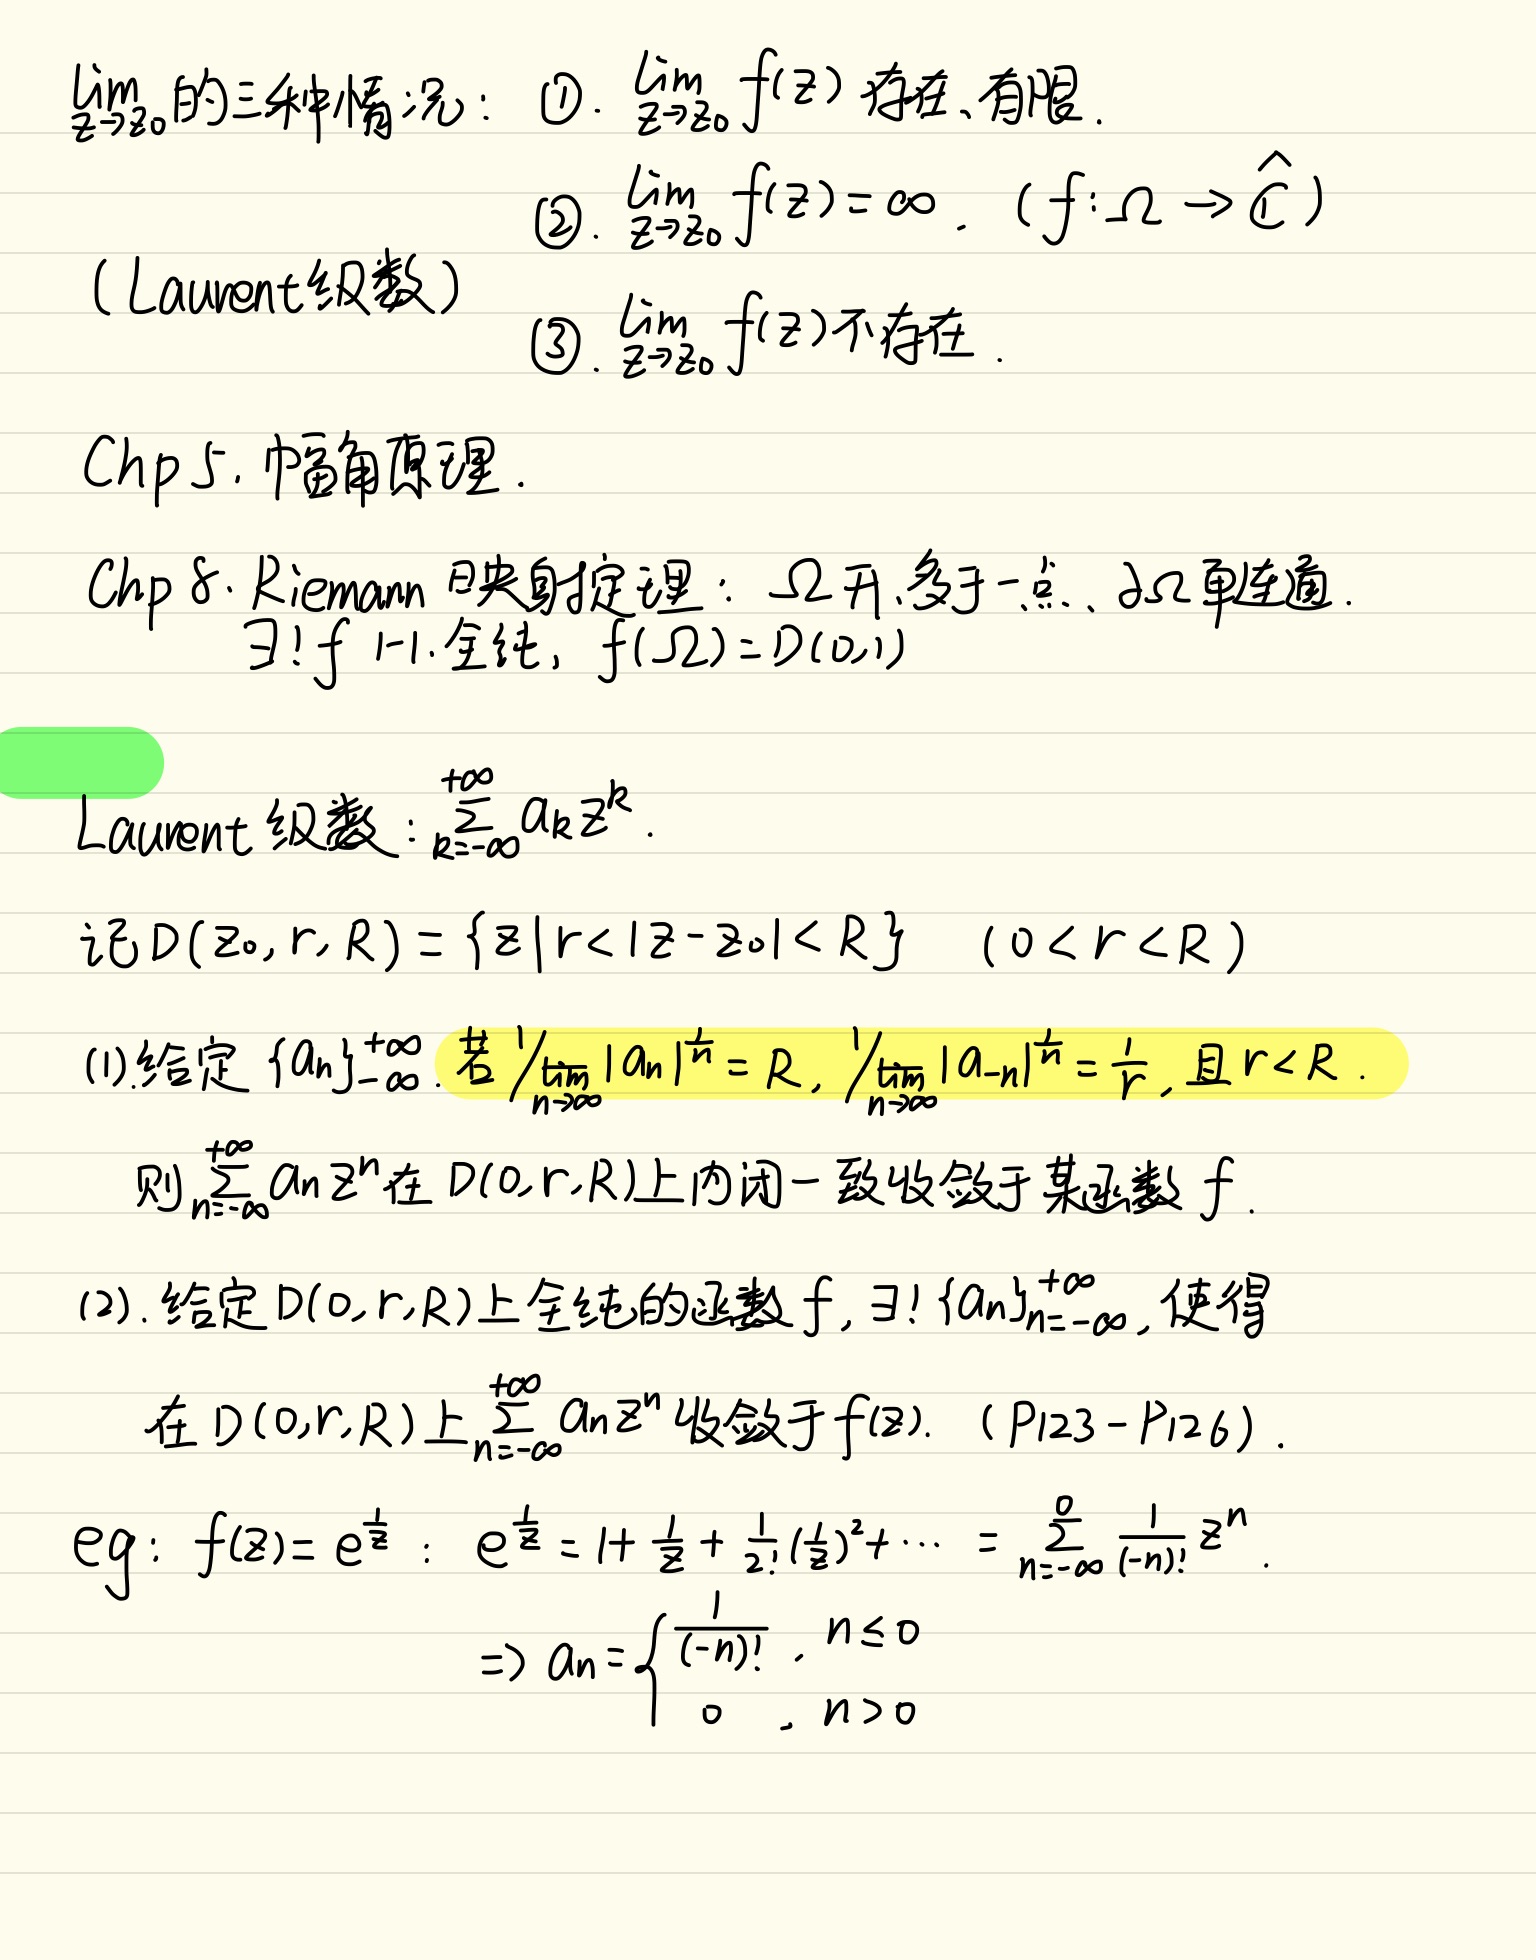 lim_{z→z₀}的三种情况: ①. lim_{z→z₀} f(z) 存在、有限.
②. lim_{z→z₀} f(z) = ∞. (f: Ω → Ĉ)
(Laurent级数)
③. lim_{z→z₀} f(z) 不存在.
Chp 5. 幅角原理.
Chp 8. Riemann 映射定理: Ω 开、多于一点、∂Ω 单连通.
∃! f 1-1. 全纯, f(Ω) = D(0,1)
Laurent 级数: ∑_{k=-∞}^{+∞} a_k z^k.
记 D(z₀, r, R) = {z | r < |z - z₀| < R} (0 < r < R)
(1). 给定 {a_n}_{-∞}^{+∞}. 若 1/\overline{lim}_{n→∞} |a_n|^{1/n} = R, 1/\overline{lim}_{n→∞} |a_{-n}|^{1/n} = 1/r, 且 r < R.
则 ∑_{n=-∞}^{+∞} a_n z^n 在 D(0, r, R) 上内闭一致收敛于某函数 f.
(2). 给定 D(0, r, R) 上全纯的函数 f, ∃! {a_n}_{n=-∞}^{+∞}, 使得
在 D(0, r, R) 上 ∑_{n=-∞}^{+∞} a_n z^n 收敛于 f(z). (P123 - P126).
eg: f(z) = e^{1/z} : e^{1/z} = 1 + 1/z + 1/2! (1/z)² + ⋯ = ∑_{n=-∞}^{0} 1/(-n)! z^n.
⇒ a_n = { 1/(-n)! , n ≤ 0
0 , n > 0